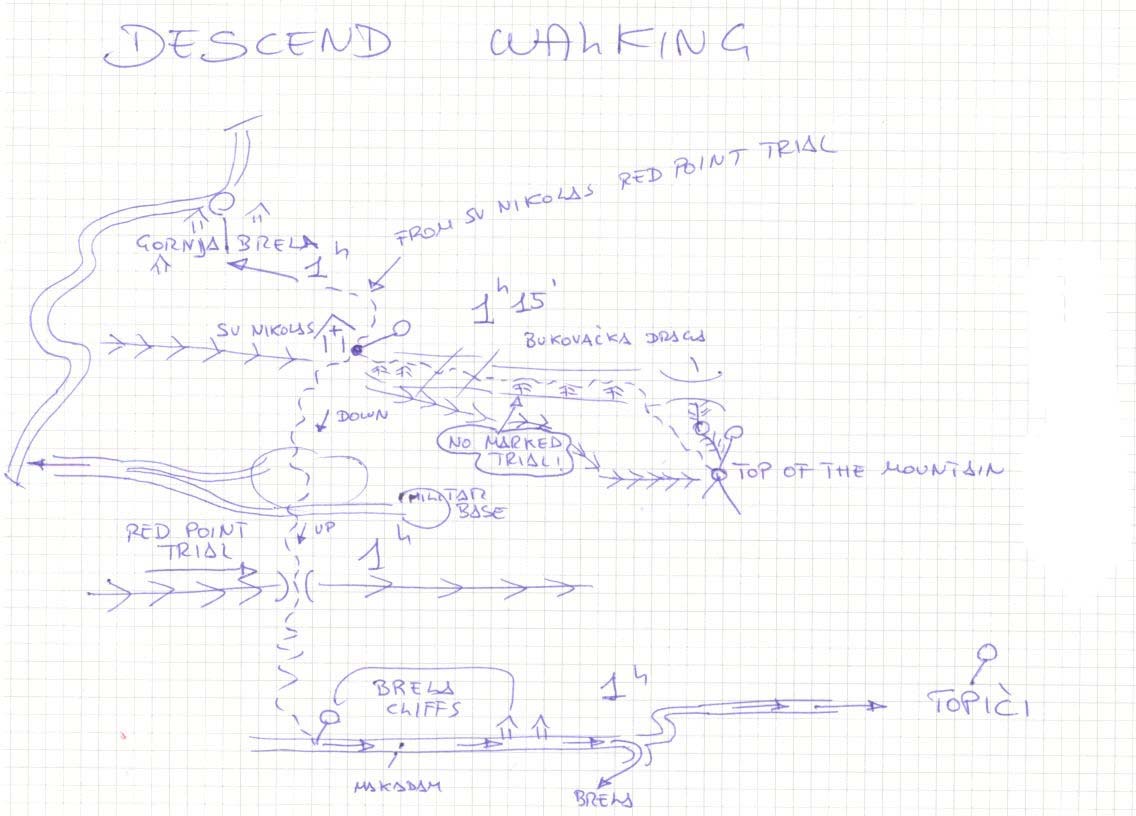 DESCEND WALKING
FROM SV NIKOLAS RED POINT TRIAL
GORNJA BRELA
1h
1h 15'
SV NIKOLAS
BUKOVAČKA DRAGA
DOWN
NO MARKED
TRIAL!
TOP OF THE MOUNTAIN
MILITAR
BASE
UP
RED POINT
TRIAL
1h
BRELA
CLIFFS
1h
TOPIČI
MAKADAM
BRELA